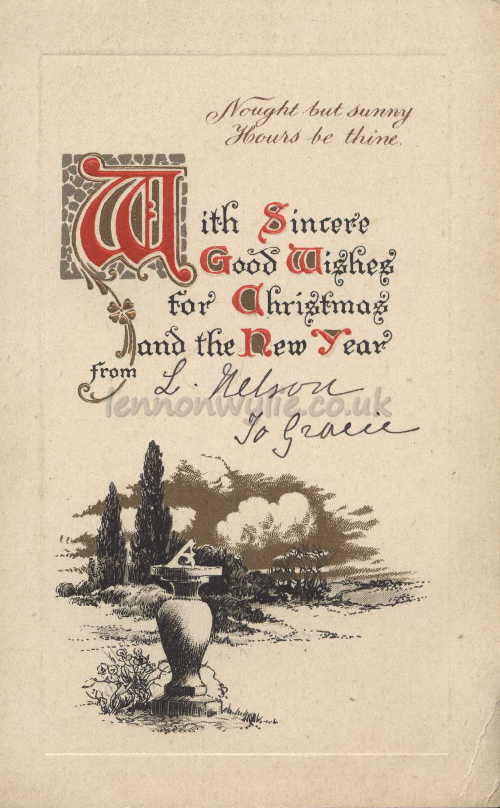 Nought but sunny
Hours be thine.
With Sincere
Good Wishes
for Christmas
and the New Year
from L. Nelson
lennonwylie.co.uk
To Gracie